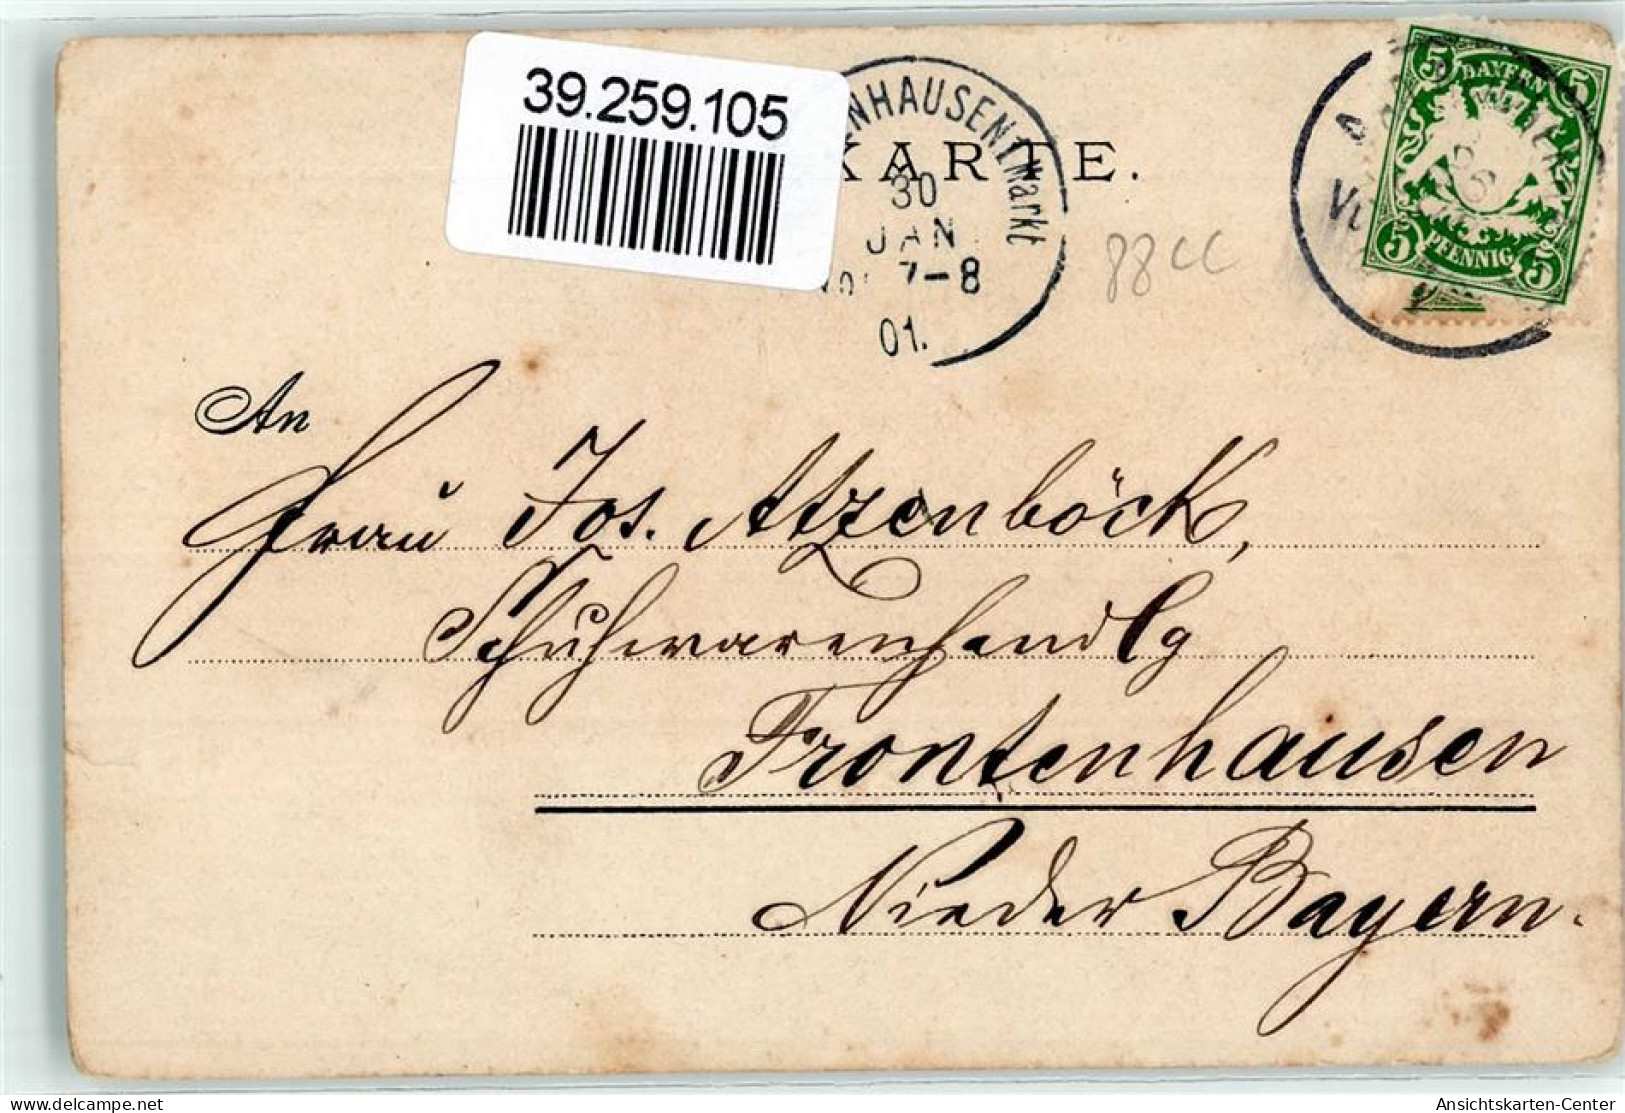 39.259.105
ENHAUSEN (Markt
30
JAN
7-8
01.
KARTE.
5 BAYERN 5
5 PFENNIG 5
88 CC
An
Frau Jos. Atzenböck,
Schuhwarenhandlg
Frontenhausen
Nieder Bayern.
delcampe.net
Ansichtskarten-Center